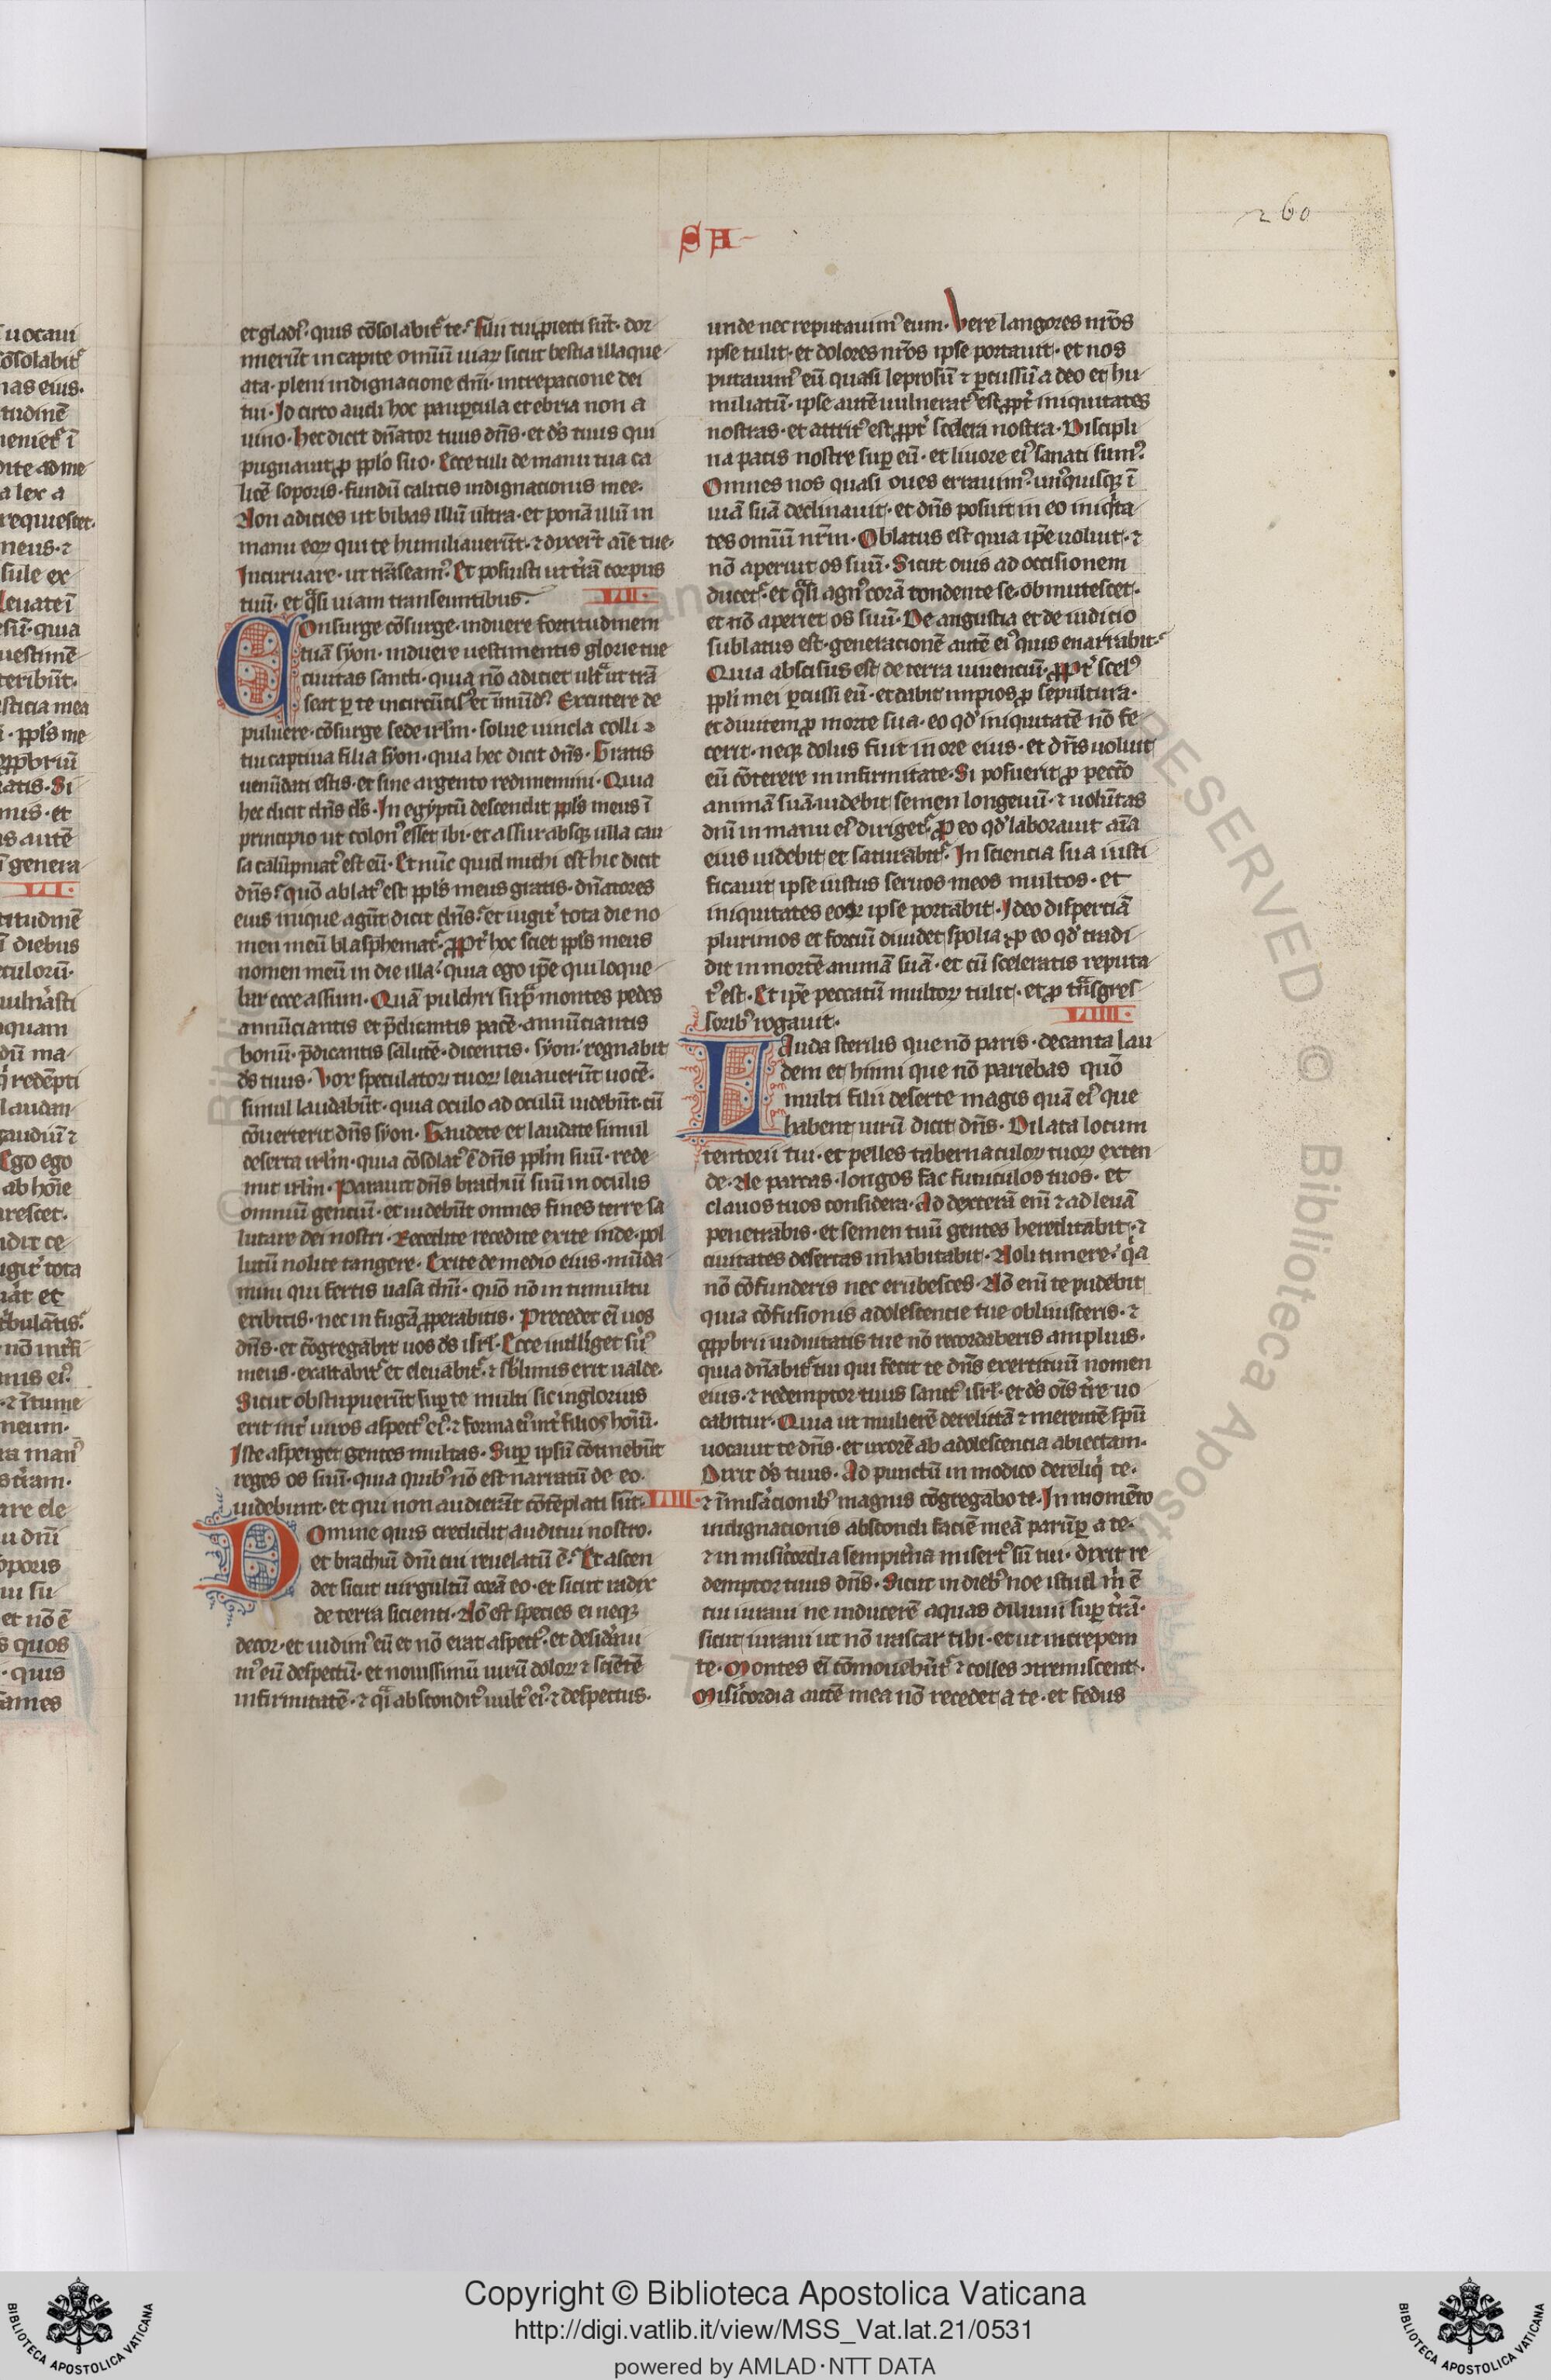 260
SA
et gladi᷒. quis cōsolabit᷑ te. filii tui ꝓiecti sūt. dor
mierūt in capite omīū uiaꝝ sicut bestia illaque
ata. pleni indignacione dn̄i. increpacione dei
tui. Id circo audi hoc paupercula et ebria non a
uino. hec dicit dn̄ator tuus dn̄s. et ds̄ tuus qui
pugnauit ꝓ pplo suo. Ecce tuli de manu tua ca
licē soporis. fundū calicis indignacionis mee.
Non adicies ut bibas illū ultra. et ponā illū in
manu eoꝝ qui te humiliauerūt. ⁊ dixert̄ aīe tue.
Incuruare. ut trāseam᷒. Et posuisti ut t̄rā corpus
tuū. et q̄si uiam transeuntibus. VII.
Consurge cōsurge. induere fortitudinem
tuā syon. induere uestimentis glorie tue
ciuitas sancti. quia nō adiciet ultᵃ ut trā
seat per te incircūcis᷒ et īmūd᷒. Excutere de
puluere. cōsurge sede ierl̄m. solue uincla colli
tui captiua filia syon. quia hec dicit dn̄s. Gratis
uenūdati estis. et sine argento redimemini. Quia
hec dicit dn̄s ds̄. In egyptū descendit ppl̄s meus ī
principio ut colon᷒ esset ibi. et assur absq; ulla cau
sa calūpniat᷒ est eū. Et nūc quid michi est hic dicit
dn̄s. quō ablat᷒ est ppl̄s meus gratis. dn̄atores
eius inique agūt dicit dn̄s. et iugit᷑ tota die no
men meū blasphemat᷑. ꝓpt᷑ hoc sciet ppl̄s meus
nomen meū in die illa. quia ego ip̄e qui loque
bar ecce assum. Quā pulchri supᵃ montes pedes
annūciantis et p̄dicantis pacē. annūciantis
bonū. p̄dicantis salutē. dicentis. syon. regnabit
ds̄ tuus. Vox speculatoꝝ tuoꝝ leuauerūt uocē.
simul laudabūt. quia oculo ad oculū uidebūt. cū
cōuerterit dn̄s syon. Gaudete et laudate simul
deserta irl̄m. quia cōsolat᷒ ē dn̄s ppl̄m suū. rede
mit irl̄m. Parauit dn̄s brachiū suū in oculis
omniū genciū. et uidebūt omnes fines terre sa
lutare dei nostri. Recedite recedite exite inde. pol
lutū nolite tangere. Exite de medio eius. mūda
mini qui fertis uasa dn̄i. quō nō in tumultu
exibitis. nec in fugā ꝓperabitis. Precedet eī uos
dn̄s. et cōgregabit uos ds̄ isrl̄. Ecce intelliget su᷒
meus. exaltabit᷑ et eleuabit᷑. ⁊ sblimis erit ualde.
Sicut obstupuerūt super te multi sic inglorius
erit int᷑ uiros aspect᷒ ei᷒. ⁊ forma ei᷒ int᷑ filios hoīū.
Iste asperget gentes multas. Super ipsū cōtinebūt
reges os suū. quia quib᷒ nō est narratū de eo.
uiderunt. et qui non audierūt cōtēplati sūt. VIII.
Domine quis credidit auditui nostro.
et brachiū dn̄i cui reuelatū ē. Et ascen
det sicut uirgultū corā eo. et sicut radix
de terra sicienti. Nō est species ei neq;
decor. et uidim᷒ eū et nō erat aspect᷒. et desid᷑aui
m᷒ eū despectū. et nouissimū uirū doloꝝ ⁊ sciētē
infirmitatē. ⁊ qᵃi abscondit᷒ uult᷒ ei᷒. ⁊ despectus.
unde nec reputauim᷒ eum. Vere langores nr̄os
ipse tulit. et dolores nr̄os ipse portauit. et nos
putauim᷒ eū quasi leprosū ⁊ percussū a deo et hu
miliatū. ipse autē uulnerat᷒ est ꝓpt᷑ iniquitates
nostras. et attrit᷒ est ꝓpt᷑ scelera nostra. Discipli
na pacis nostre super eū. et liuore ei᷒ sanati sum᷒.
Omnes nos quasi oues errauim᷒. un᷒quisq; ī
uiā suā declinauit. et dn̄s posuit in eo iniqⁱta
tes omīū nr̄m. Oblatus est quia ip̄e uoluit. ⁊
nō aperuit os suū. Sicut ouis ad occisionem
ducet᷑. et qᵃsi agn᷒ corā tondente se. obmutescet.
et nō aperiet os suū. De angustia et de iudicio
sublatus est. generacionē autē ei᷒ quis enarrabit.
Quia abscisus est de terra uiuenciū. ꝓpt᷑ scel᷒
ppli mei percussi eū. et dabit impios ꝓ sepultura.
et diuitem ꝓ morte sua. eo qd᷒ iniquitatē nō fe
cerit. neq; dolus fuit in ore eius. et dn̄s uoluit
eū cōterere in infirmitate. Si posuerit ꝓ pecc̄o
animā suā. uidebit semen longeuū. ⁊ uolūtas
dn̄i in manu ei᷒ diriget᷑. ꝓ eo qd᷒ laborauit aīa
eius uidebit et saturabit᷑. In sciencia sua iusti
ficauit ipse iustus seruos meos multos. et
iniquitates eoꝝ ipse portabit. Ideo dispertiā
plurimos et forciū diuidet spolia. ꝓ eo qd᷒ tradi
dit in mortē animā suā. et cū sceleratis reputa
t᷒ est. Et ip̄e peccatū multoꝝ tulit. et ꝓ trāsgres
sorib᷒ rogauit. VIIII.
Lauda sterilis que nō paris. decanta lau
dem et hinni que nō pariebas quō
multi filii deserte magis quā ei᷒ que
habent uirū dicit dn̄s. Dilata locum
tentorii tui. et pelles tabernaculoꝝ tuoꝝ exten
de. Ne parcas. longos fac funiculos tuos. et
clauos tuos considera. Ad dexterā enī ⁊ ad leuā
penetrabis. et semen tuū gentes hereditabit. ⁊
ciuitates desertas inhabitabit. Noli timere. qᵃ
nō cōfunderis nec erubesces. Nō enī te pudebit
quia cōfusionis adolescentie tue obliuisceris. ⁊
opprobrii uiduitatis tue nō recordaberis amplius.
quia dn̄abit᷑ tui qui fecit te dn̄s exercituū nomen
eius. ⁊ redemptor tuus sanct᷒ isrl̄. et ds̄ oīs t̄re uo
cabitur. Quia ut mulierē derelictā ⁊ merentē spū
uocauit te dn̄s. et uxorē ab adolescencia abiectam.
Dixit ds̄ tuus. Ad punctū in modico dereliqⁱ te.
⁊ ī mis᷑acionib᷒ magnis cōgregabo te. In momēto
indignacionis abscondi faciē meā parūper a te.
⁊ in misic̄ordia sempit᷑na misert᷒ sū tui. dixit re
demptor tuus dn̄s. Sicut in dieb᷒ noe istud m̄ ē
cui iuraui ne inducerē aquas diluuii super t̄rā.
sicut iuraui ut nō irascar tibi. et ut increpem
te. Montes eī cōmouebūt᷑ ⁊ colles ꝯtremiscent.
Misic̄ordia autē mea nō recedet a te. et fedus
Copyright © Biblioteca Apostolica Vaticana
http://digi.vatlib.it/view/MSS_Vat.lat.21/0531
powered by AMLAD·NTT DATA
BIBLIOTECA APOSTOLICA VATICANA
BIBLIOTECA APOSTOLICA VATICANA